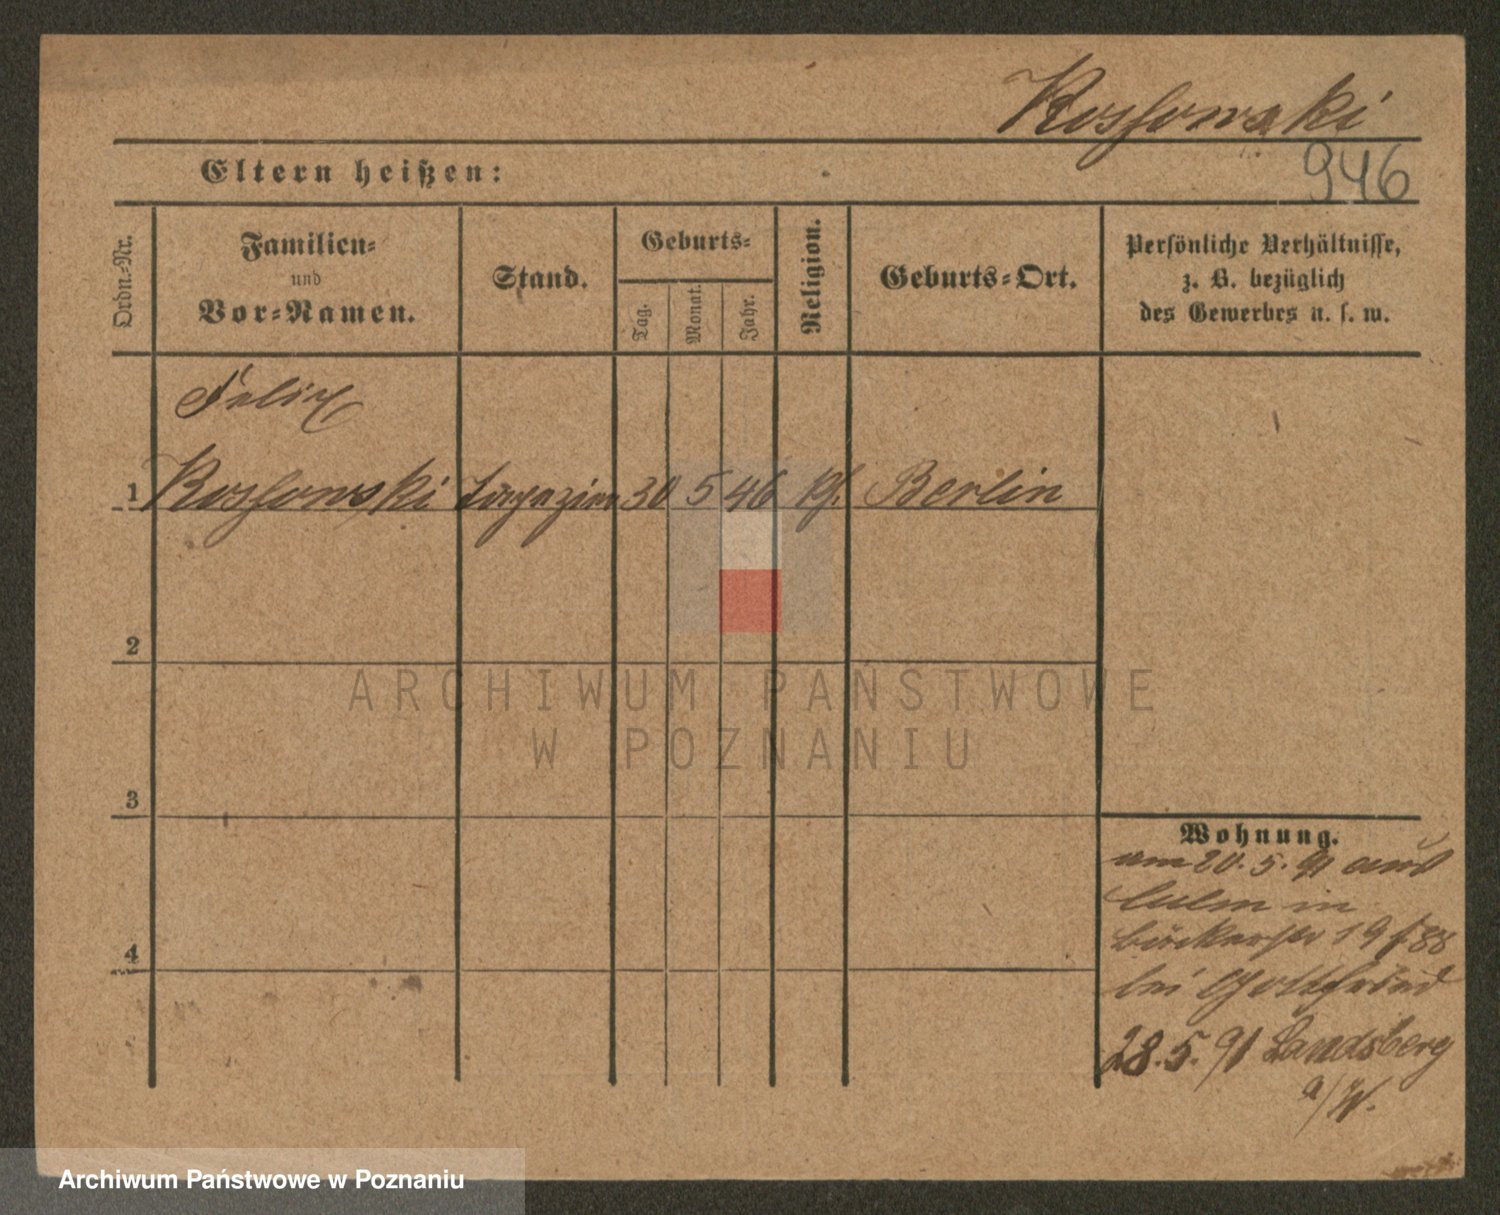 Kossowski
946
Eltern heißen:
Ordn.-Nr.
Familien-
und
Vor-Namen.
Stand.
Geburts-
Tag.
Monat.
Jahr.
Religion.
Geburts-Ort.
Persönliche Verhältnisse,
z. B. bezüglich
des Gewerbes u. s. w.
Felix
1 Kossowski 30 5 46 Berlin
2
ARCHIWUM PAŃSTWOWE
W POZNANIU
3
Wohnung.
am 20.5.91 aus
Culm in
19
4
bei Gottfried
28.5.91 Landsberg
a/W.
Archiwum Państwowe w Poznaniu